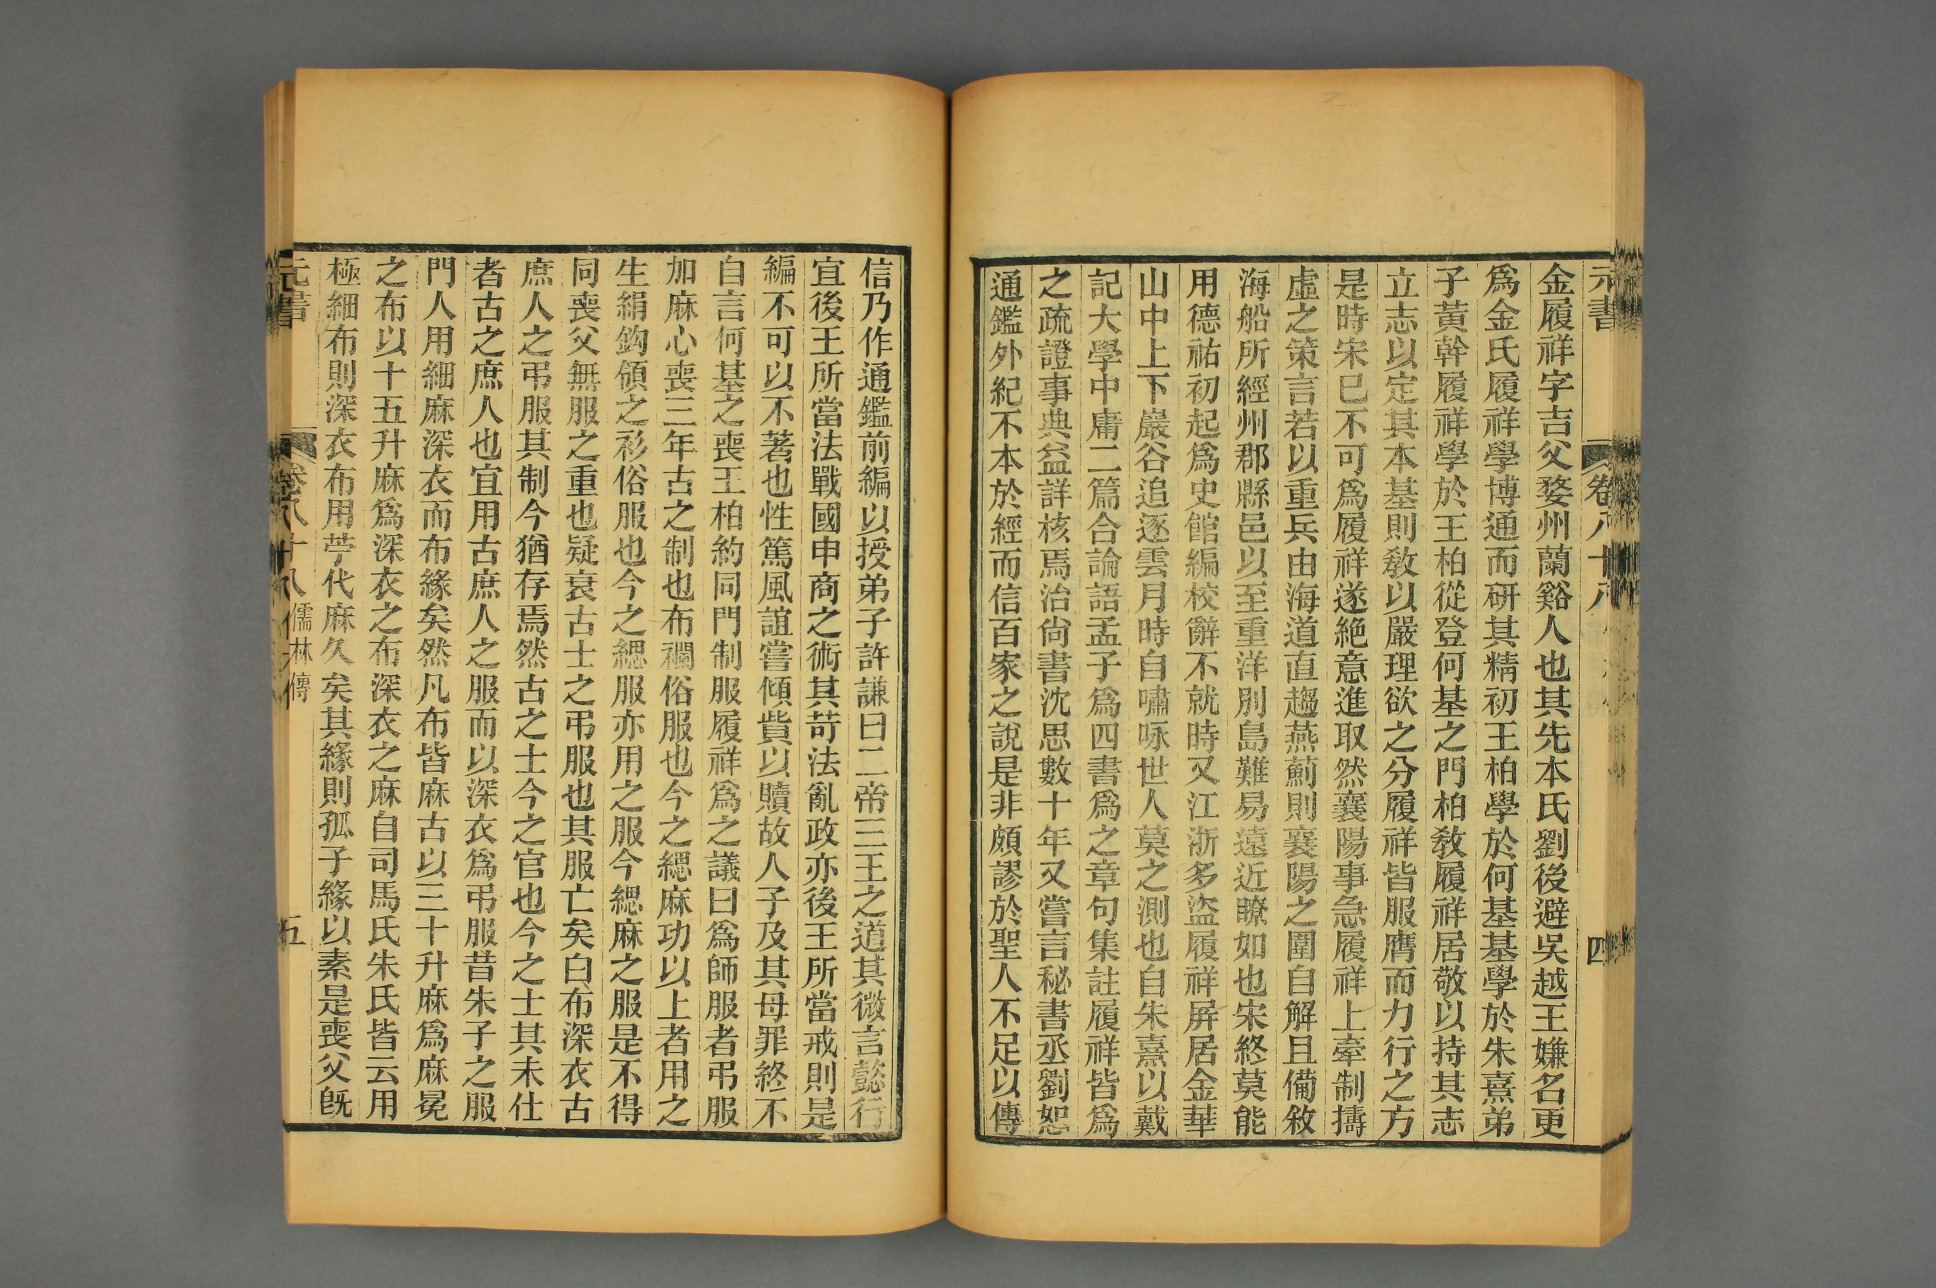 元書
卷八十八
四
金履祥字吉父婺州蘭谿人也其先本氏劉後避吳越王嫌名更
爲金氏履祥學博通而研其精初王柏學於何基基學於朱熹弟
子黃幹履祥學於王柏從登何基之門柏敎履祥居敬以持其志
立志以定其本基則敎以嚴理欲之分履祥皆服膺而力行之方
是時宋已不可爲履祥遂絶意進取然襄陽事急履祥上牽制擣
虛之策言若以重兵由海道直趨燕薊則襄陽之圍自解且僃敘
海船所經州郡縣邑以至重洋別島難易遠近瞭如也宋終莫能
用德祐初起爲史館編校辭不就時又江浙多盜履祥屏居金華
山中上下巖谷追逐雲月時自嘯咏世人莫之測也自朱熹以戴
記大學中庸二篇合論語孟子爲四書爲之章句集註履祥皆爲
之疏證事典益詳核焉治尙書沈思數十年又嘗言秘書丞劉恕
通鑑外紀不本於經而信百家之說是非頗謬於聖人不足以傳
信乃作通鑑前編以授弟子許謙曰二帝三王之道其微言懿行
宜後王所當法戰國申商之術其苛法亂政亦後王所當戒則是
編不可以不著也性篤風誼嘗傾貲以贖故人子及其母罪終不
自言何基之喪王柏約同門制服履祥爲之議曰爲師服者弔服
加麻心喪三年古之制也布襴俗服也今之緦麻功以上者用之
生絹鈎領之衫俗服也今之緦服亦用之服今緦麻之服是不得
同喪父無服之重也疑衰古士之弔服也其服亡矣白布深衣古
庶人之弔服其制今猶存焉然古之士今之官也今之士其未仕
者古之庶人也宜用古庶人之服而以深衣爲弔服昔朱子之服
門人用細麻深衣而布緣矣然凡布皆麻古以三十升麻爲麻冕
之布以十五升麻爲深衣之布深衣之麻自司馬氏朱氏皆云用
極細布則深衣布用苧代麻久矣其緣則孤子緣以素是喪父旣
元書
卷八十八
儒林傳
五